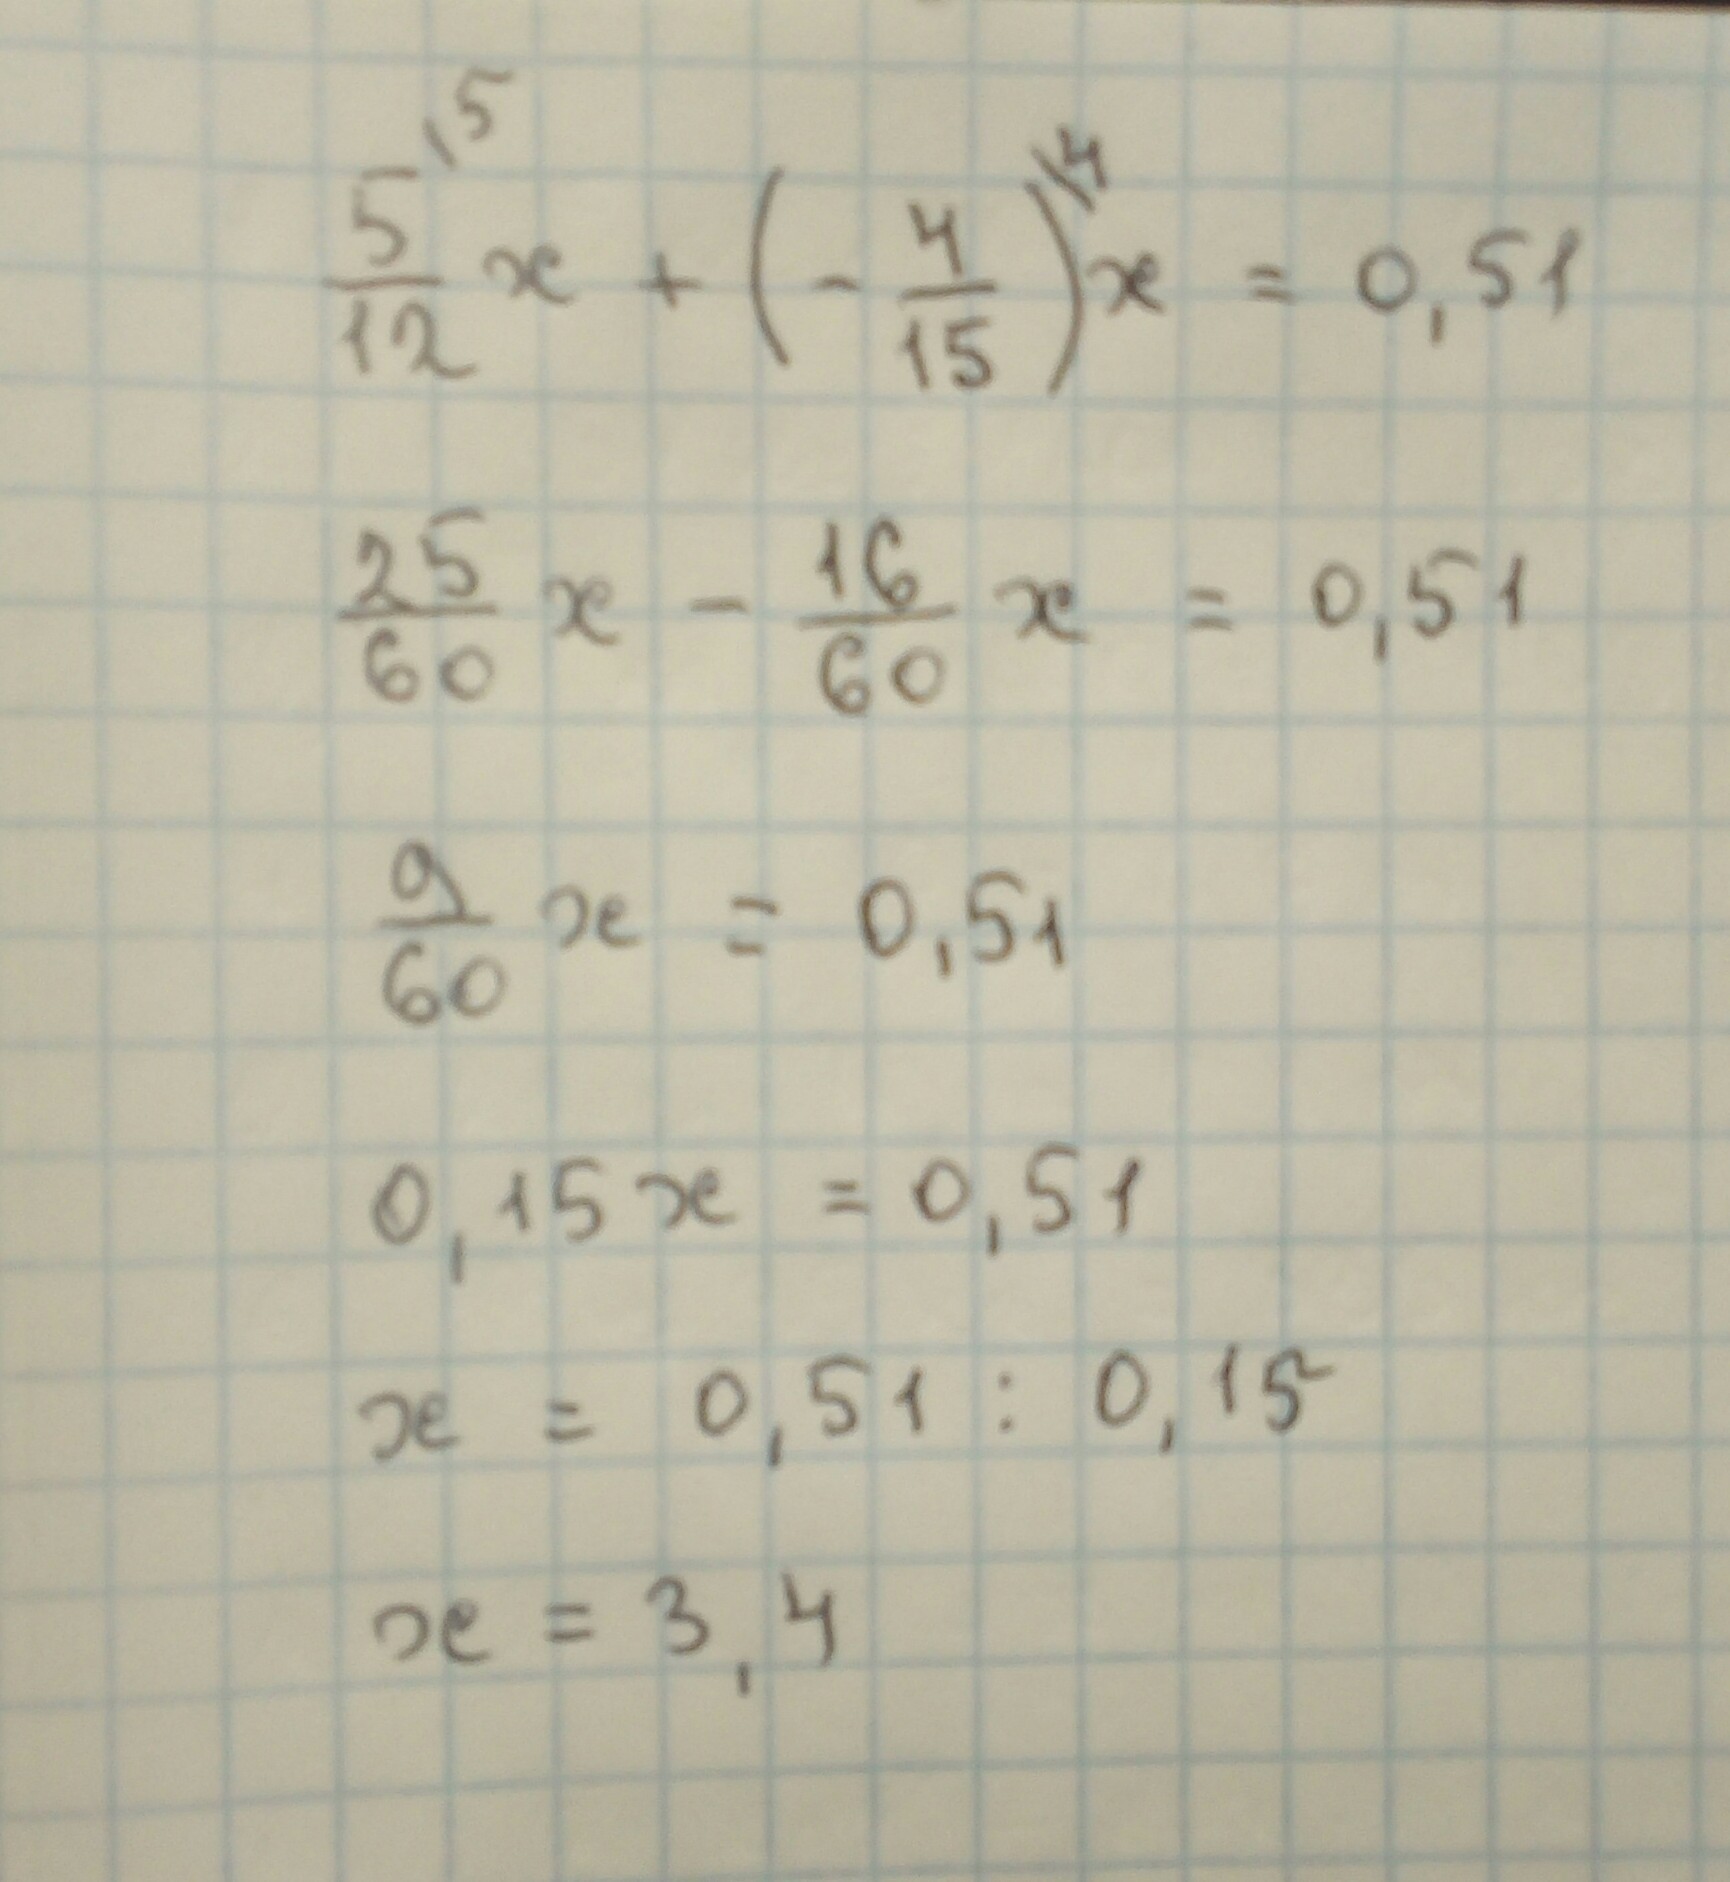 5/12 \5 x + (- 4/15) \4 x = 0,51
25/60 x - 16/60 x = 0,51
9/60 x = 0,51
0,15x = 0,51
x = 0,51 : 0,15
x = 3,4